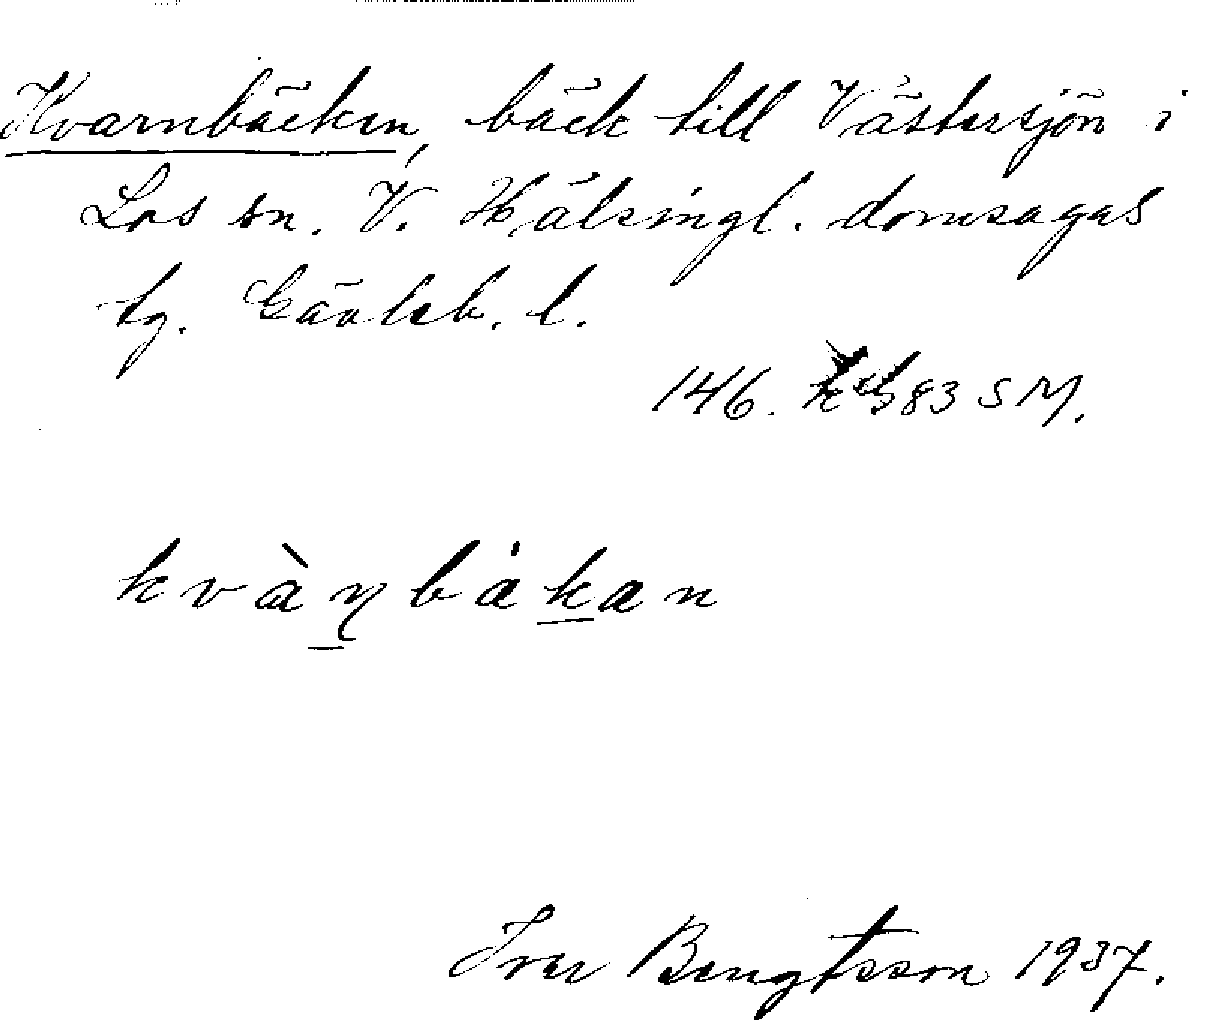 Kvarnbäcken, bäck till Västersjön i
Los sn. V. Hälsingl. domsagas
tg. Gävleb. l.
146. 83 S M.
kvàṉbȧḵan
Iver Bengtsson 1937.